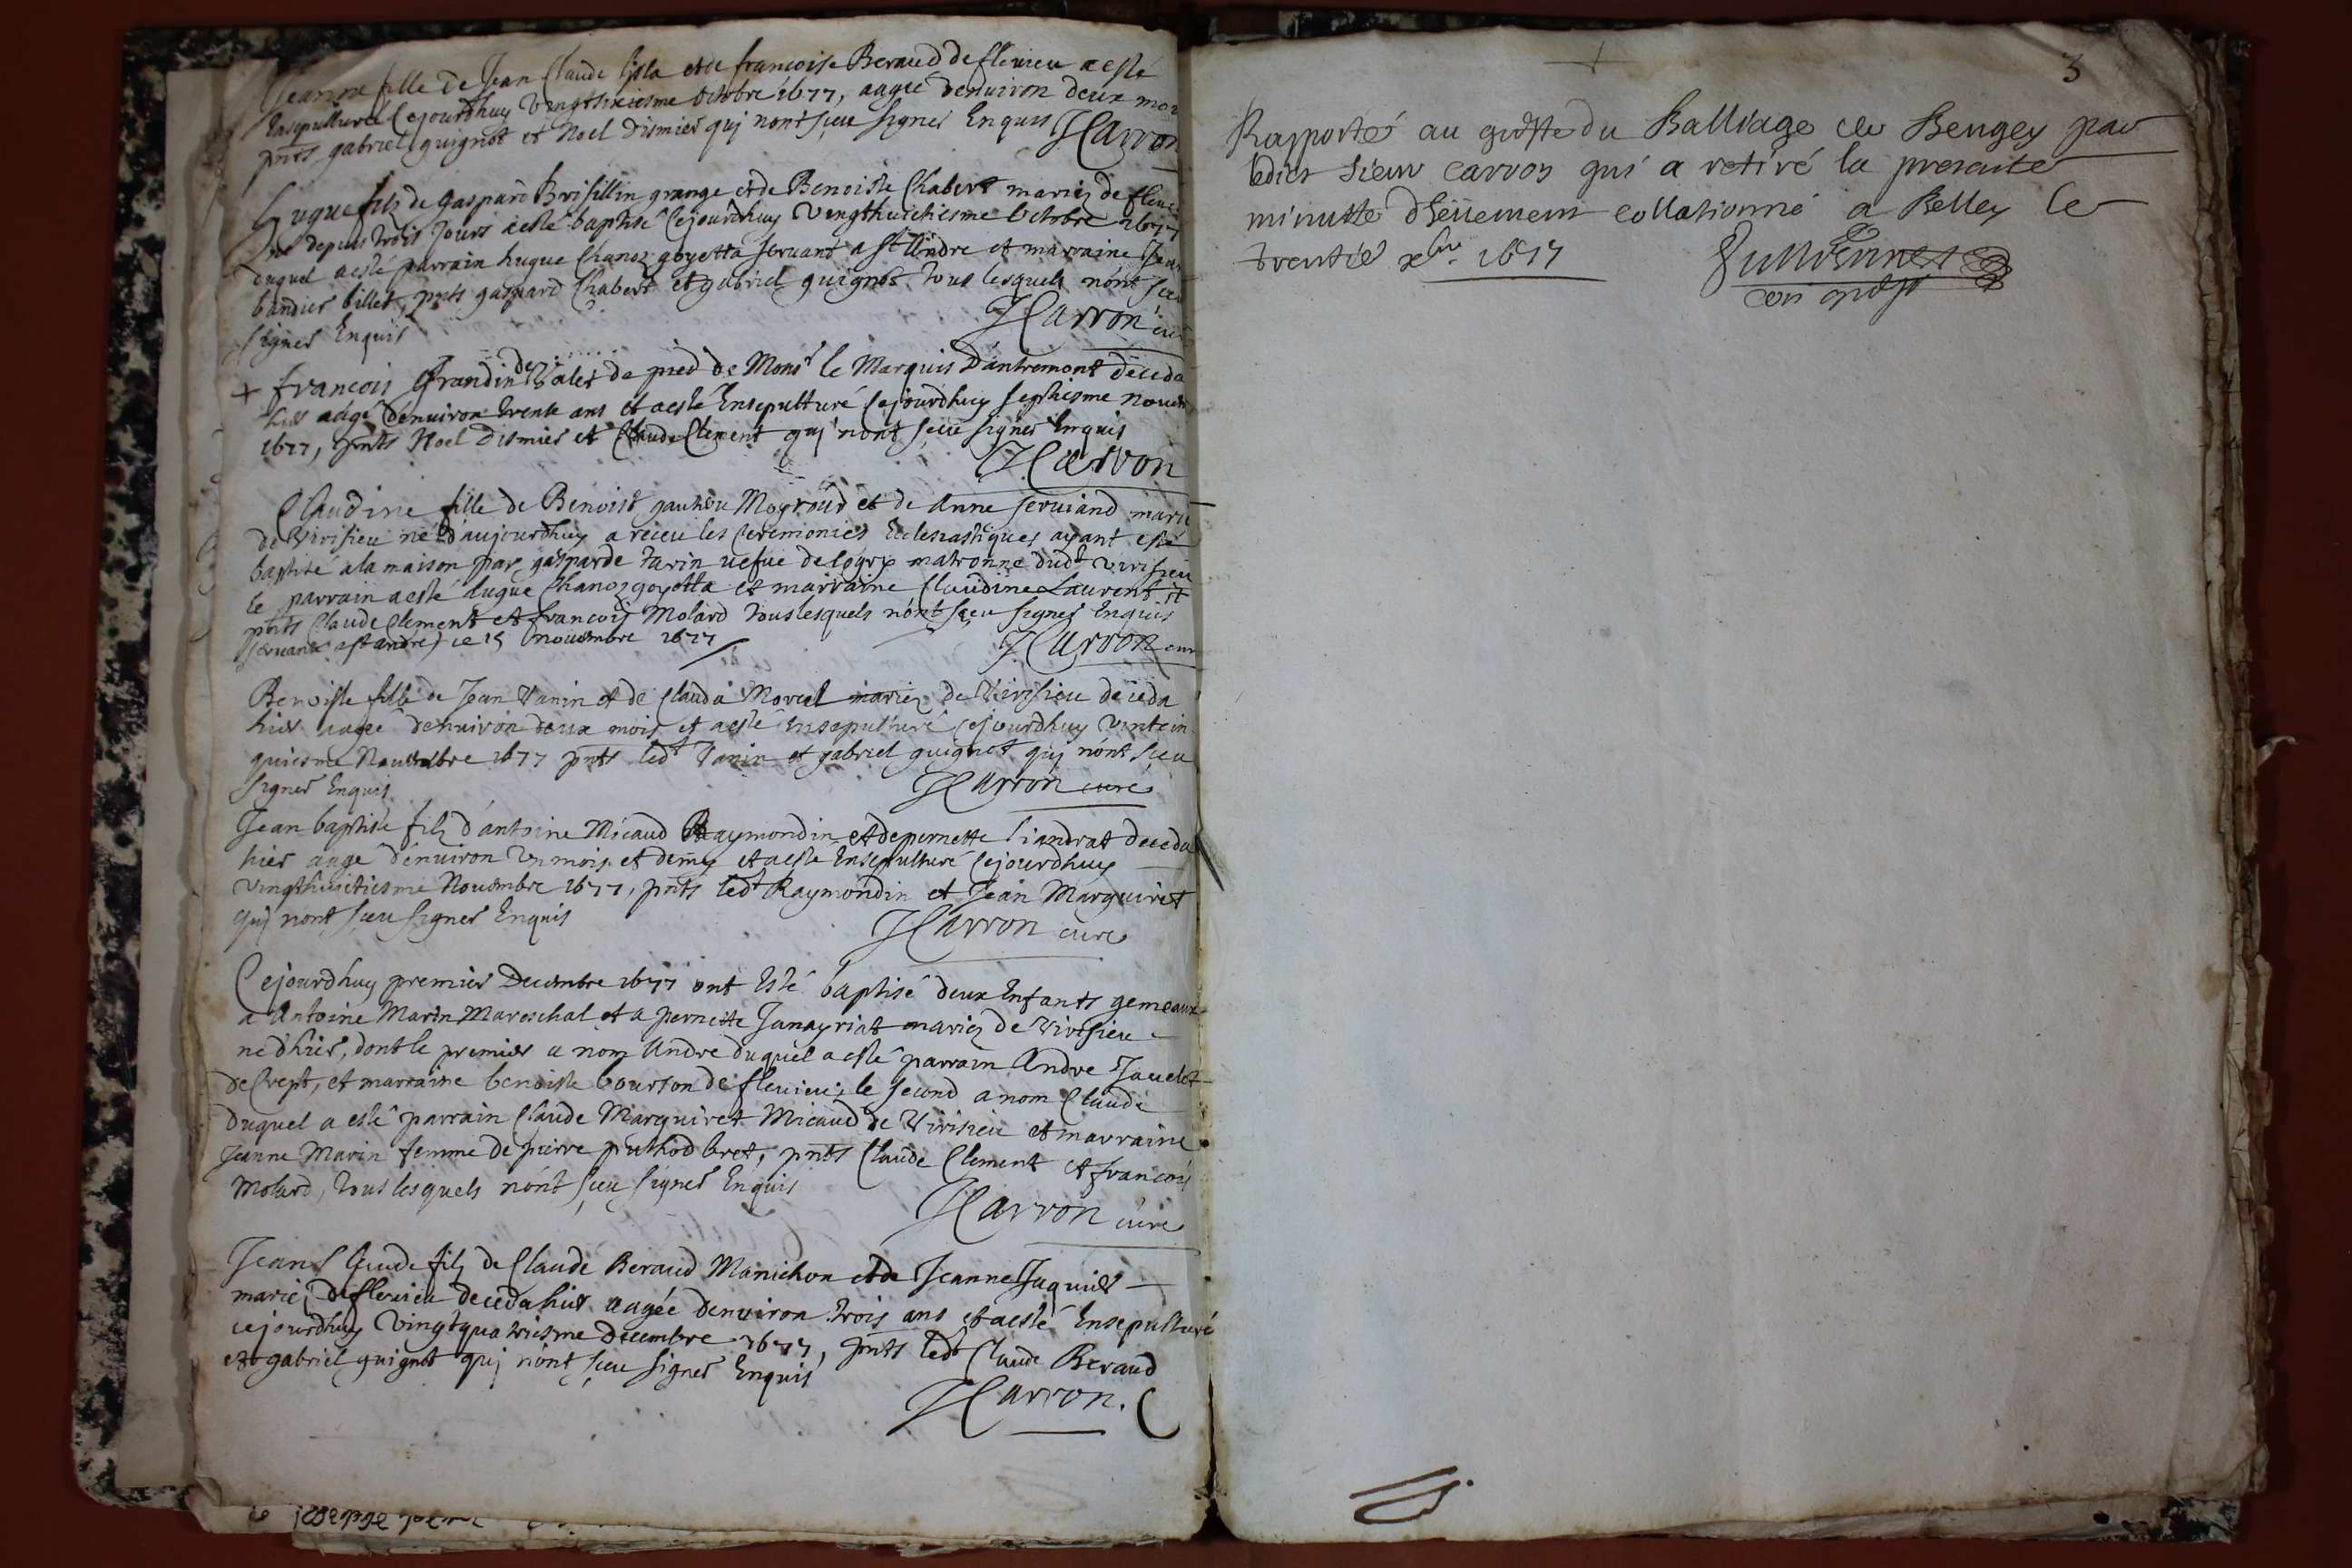 Jeanne fille de Jean Claude et de francoise Beraud de flevieu a esté
Ensepulturée Cejourdhuy Vingtsixiesme Octobre 1677, aagée denviron deux moi
pnts gabriel guignot et Noel Dismier quj nont sçeu signer Enquis JCarron
Hugue filz de Gaspard Brisillin grange et de Benoiste Chabert mariez de flevieu
né depuis trois jours a esté baptisé Cejourdhuy Vingthuictiesme Octobre 1677
duquel a esté parrain hugue Chanoz goyetta servant a st Andre et marraine
bandier billet, pnts gaspard Chabert et gabriel guignot tous lesquels nónt sçeu
signer Enquis JCarron curé
+ francois Grandin de Valet de pied de Monsr le Marquis Dántremont deceda
hier aagé dénviron trente ans et a esté Ensepulturé Cejourdhuy septiesme novem
1677, pnts Noel Dismier et Claude Clement quj nont sçeu signer Enquis
JCarron
Claudine fille de Benoist Moyroud et de Anne serviand marié
de Virisieu né d'aujourdhuy a receu les Ceremonies Eclesiastiques ayant esté
baptisé a la maison par gasparde tarin vefue de matronne dudt virisieu
le parrain a esté hugue Chanoz goyetta et marraine Claudine Laurent
pnts Claude Clement et francois Molard tous lesquels nónt sçeu signer Enquis
servante a st andré) ce 15 novembre 1677 JCarron cur
Benoiste fille de Jean Vanin et de Clauda Morcel mariez de Virisieu deceda
hier aagée denviron deux mois et a esté Ensepulturé cejourdhuy vintcin
quiesme Novembre 1677 pnts ledt Vanin et gabriel guignot quj nónt sçeu
signer Enquis JCarron curé
Jean baptiste filz d'antoine Micaud Raymondin et de pernette deceda
hier aagé dénviron Un mois et demy et a esté Ensepulturé Cejourdhuy
vingthuictiesme Novembre 1677, pnts ledt Raymondin et Jean Marguiret
quj nont sçeu signer Enquis JCarron curé
Cejourdhuy premier Decembre 1677 ont Esté baptisé deux Enfants gemeaux
a Antoine Marin Mareschal et a pernette Janayriat mariez de Virisieu
né d'hier, dont le premier a nom Andre duquel a esté parrain Andre Javelot
de Crept, et marraine benoiste bourson de flevieu; le second a nom Claude
duquel a esté parrain Claude Marguiret Micaud de Virisieu et marraine
Jeanne Marin femme de pierre puthod bret, pnts Claude Clement et francois
Molard, tous lesquels nónt sçeu signer Enquis
JCarron curé
Jean Claude filz de Claude Beraud Manichon et de Jeanne Juquier
mariez de flevieu deceda hier aagée denviron trois ans et a esté Ensepulturé
cejourdhuy vingtquatriesme Decembre 1677, pnts ledt Claude Beraud
et gabriel guignot quj nónt sçeu signer Enquis
JCarron.
3
Rapporté au greffe du Balliage de Beugey par
ledict sieur Carron qui a retiré la presente
minutte dheüement collationné a Belley le
trentie xbre 1677